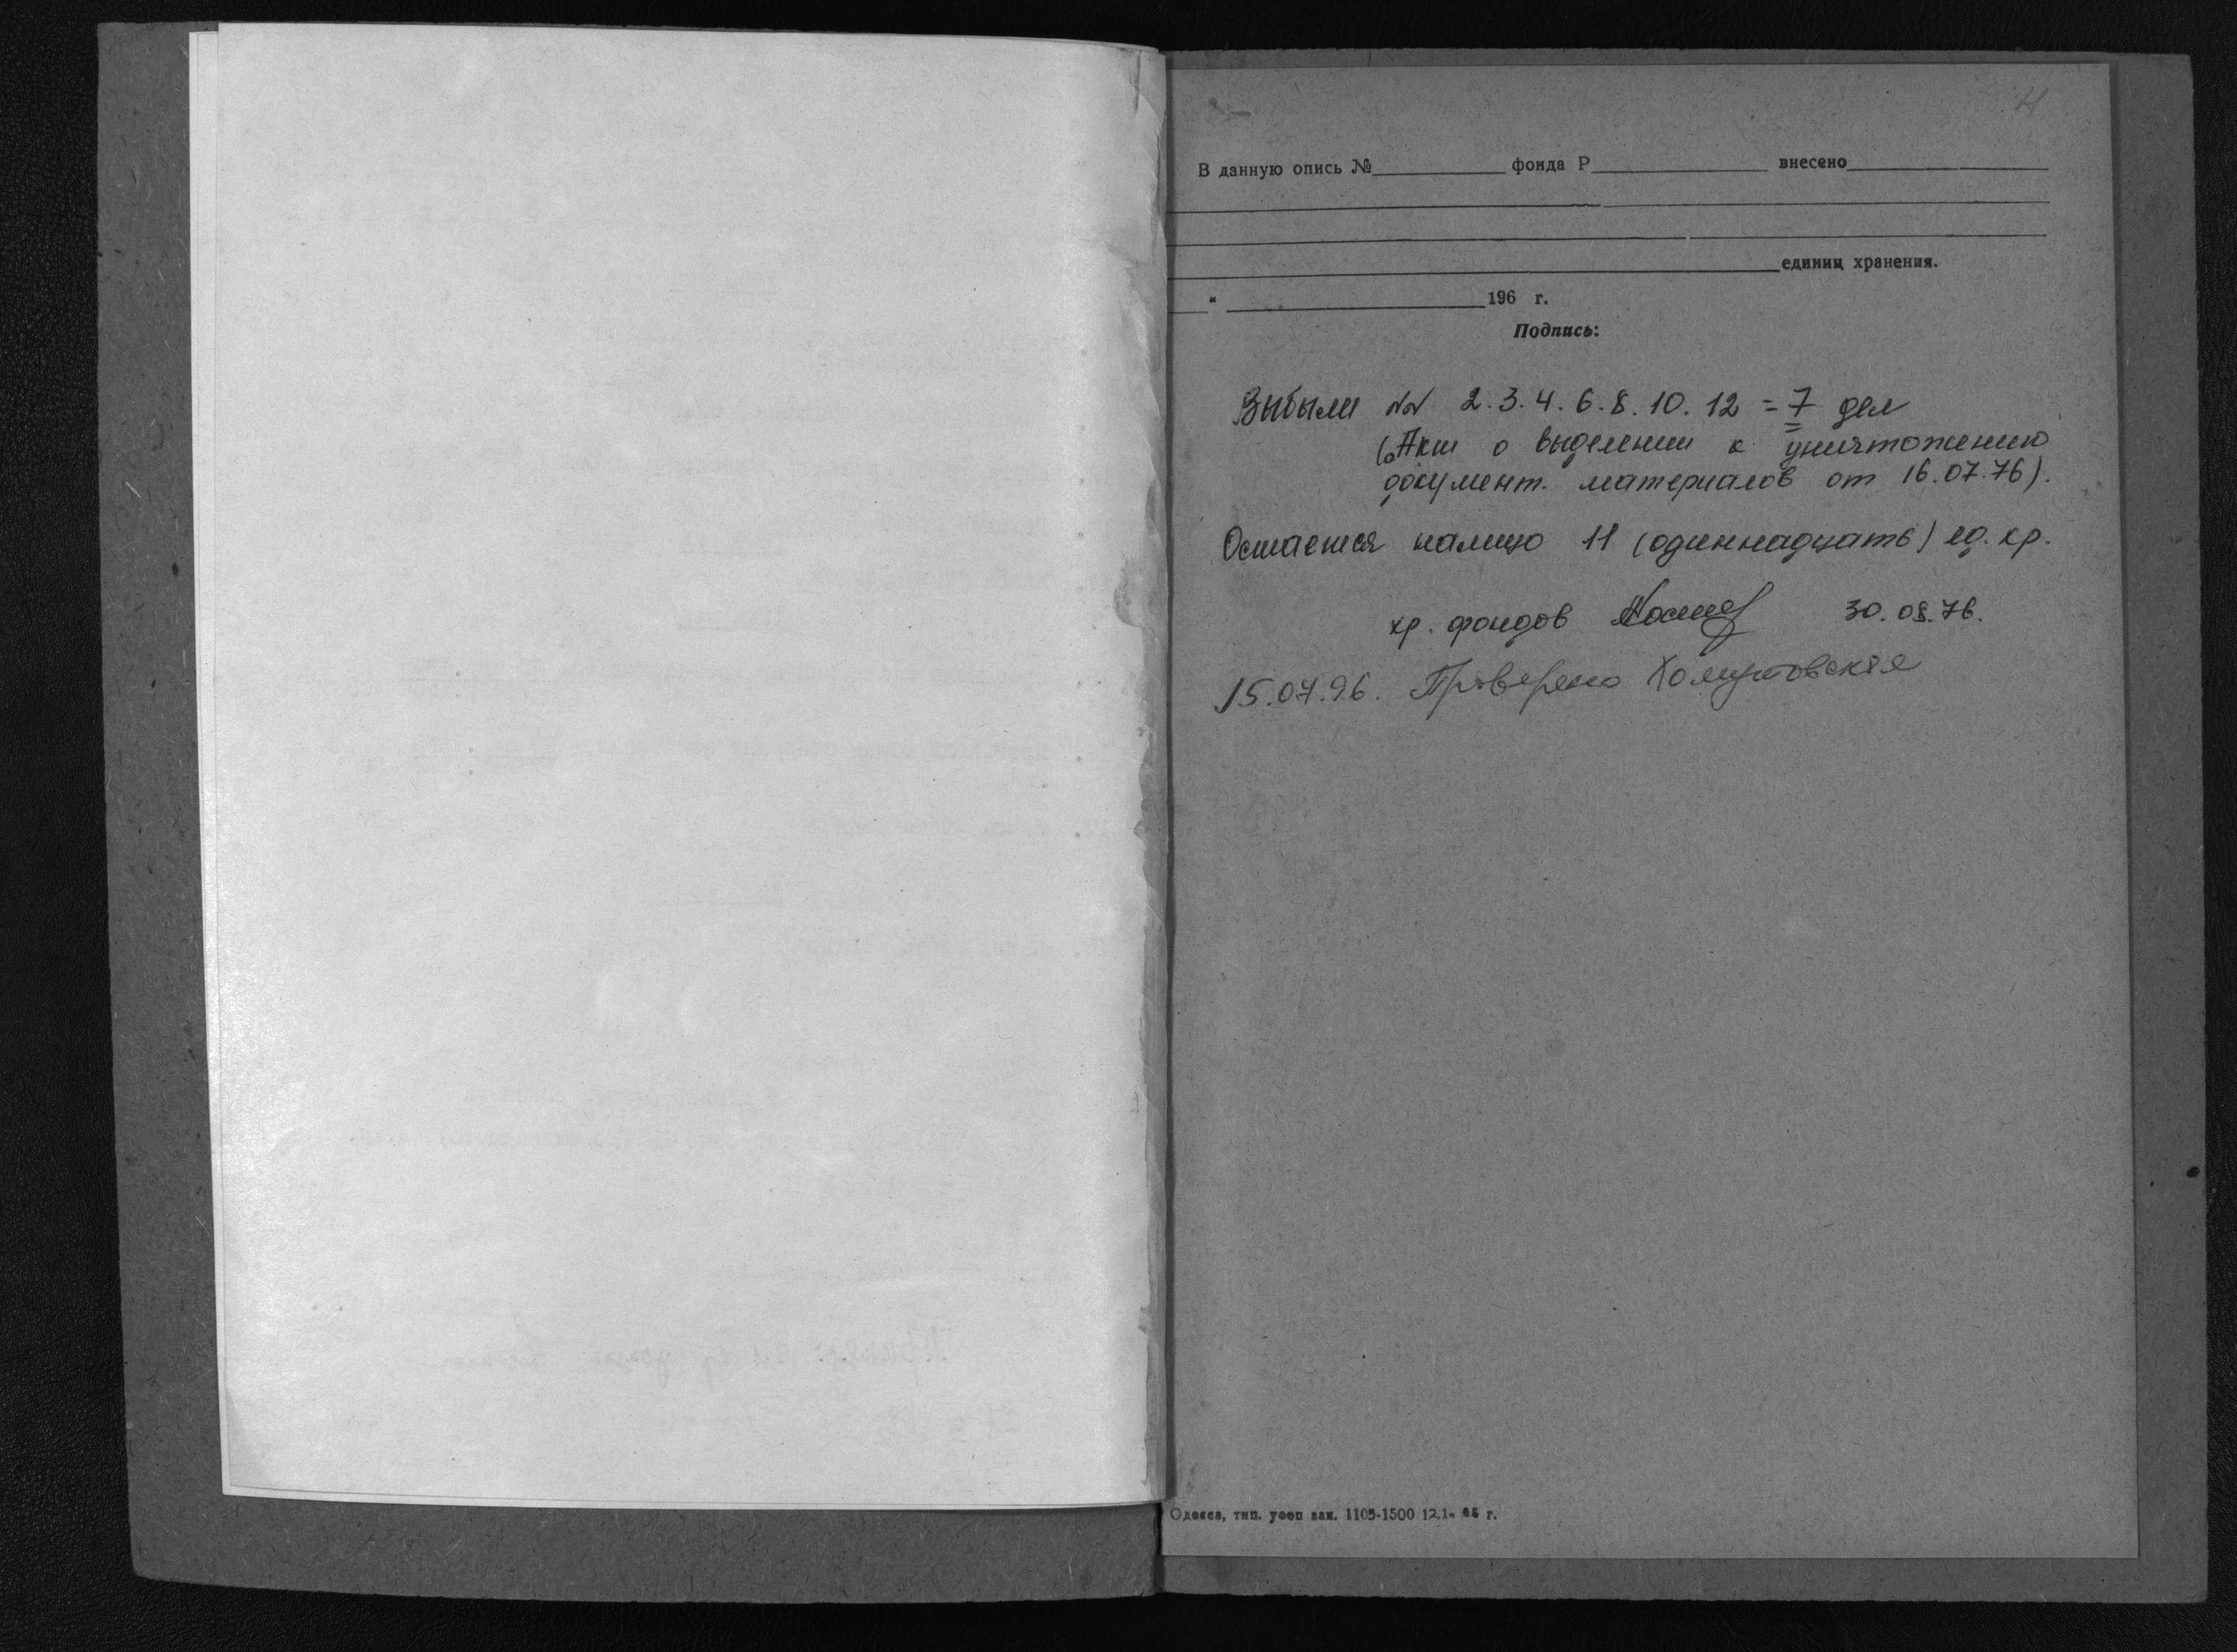 4
В данную опись №__________ фонда Р__________ внесено__________
единиц хранения.
" __________ 196 г.
Подпись:
Выбыли №№ 2. 3. 4. 6. 8. 10. 12 = 7 дел
(Акт о выделении к уничтожению
документ. материалов от 16.07.76).
Остается налицо 11 (одиннадцать) ед. хр.
хр. фондов 30.08.76.
15.07.96. Проверено Хомутовская
Одесса, тип. уооп зак. 1105-1500 12.1- г.